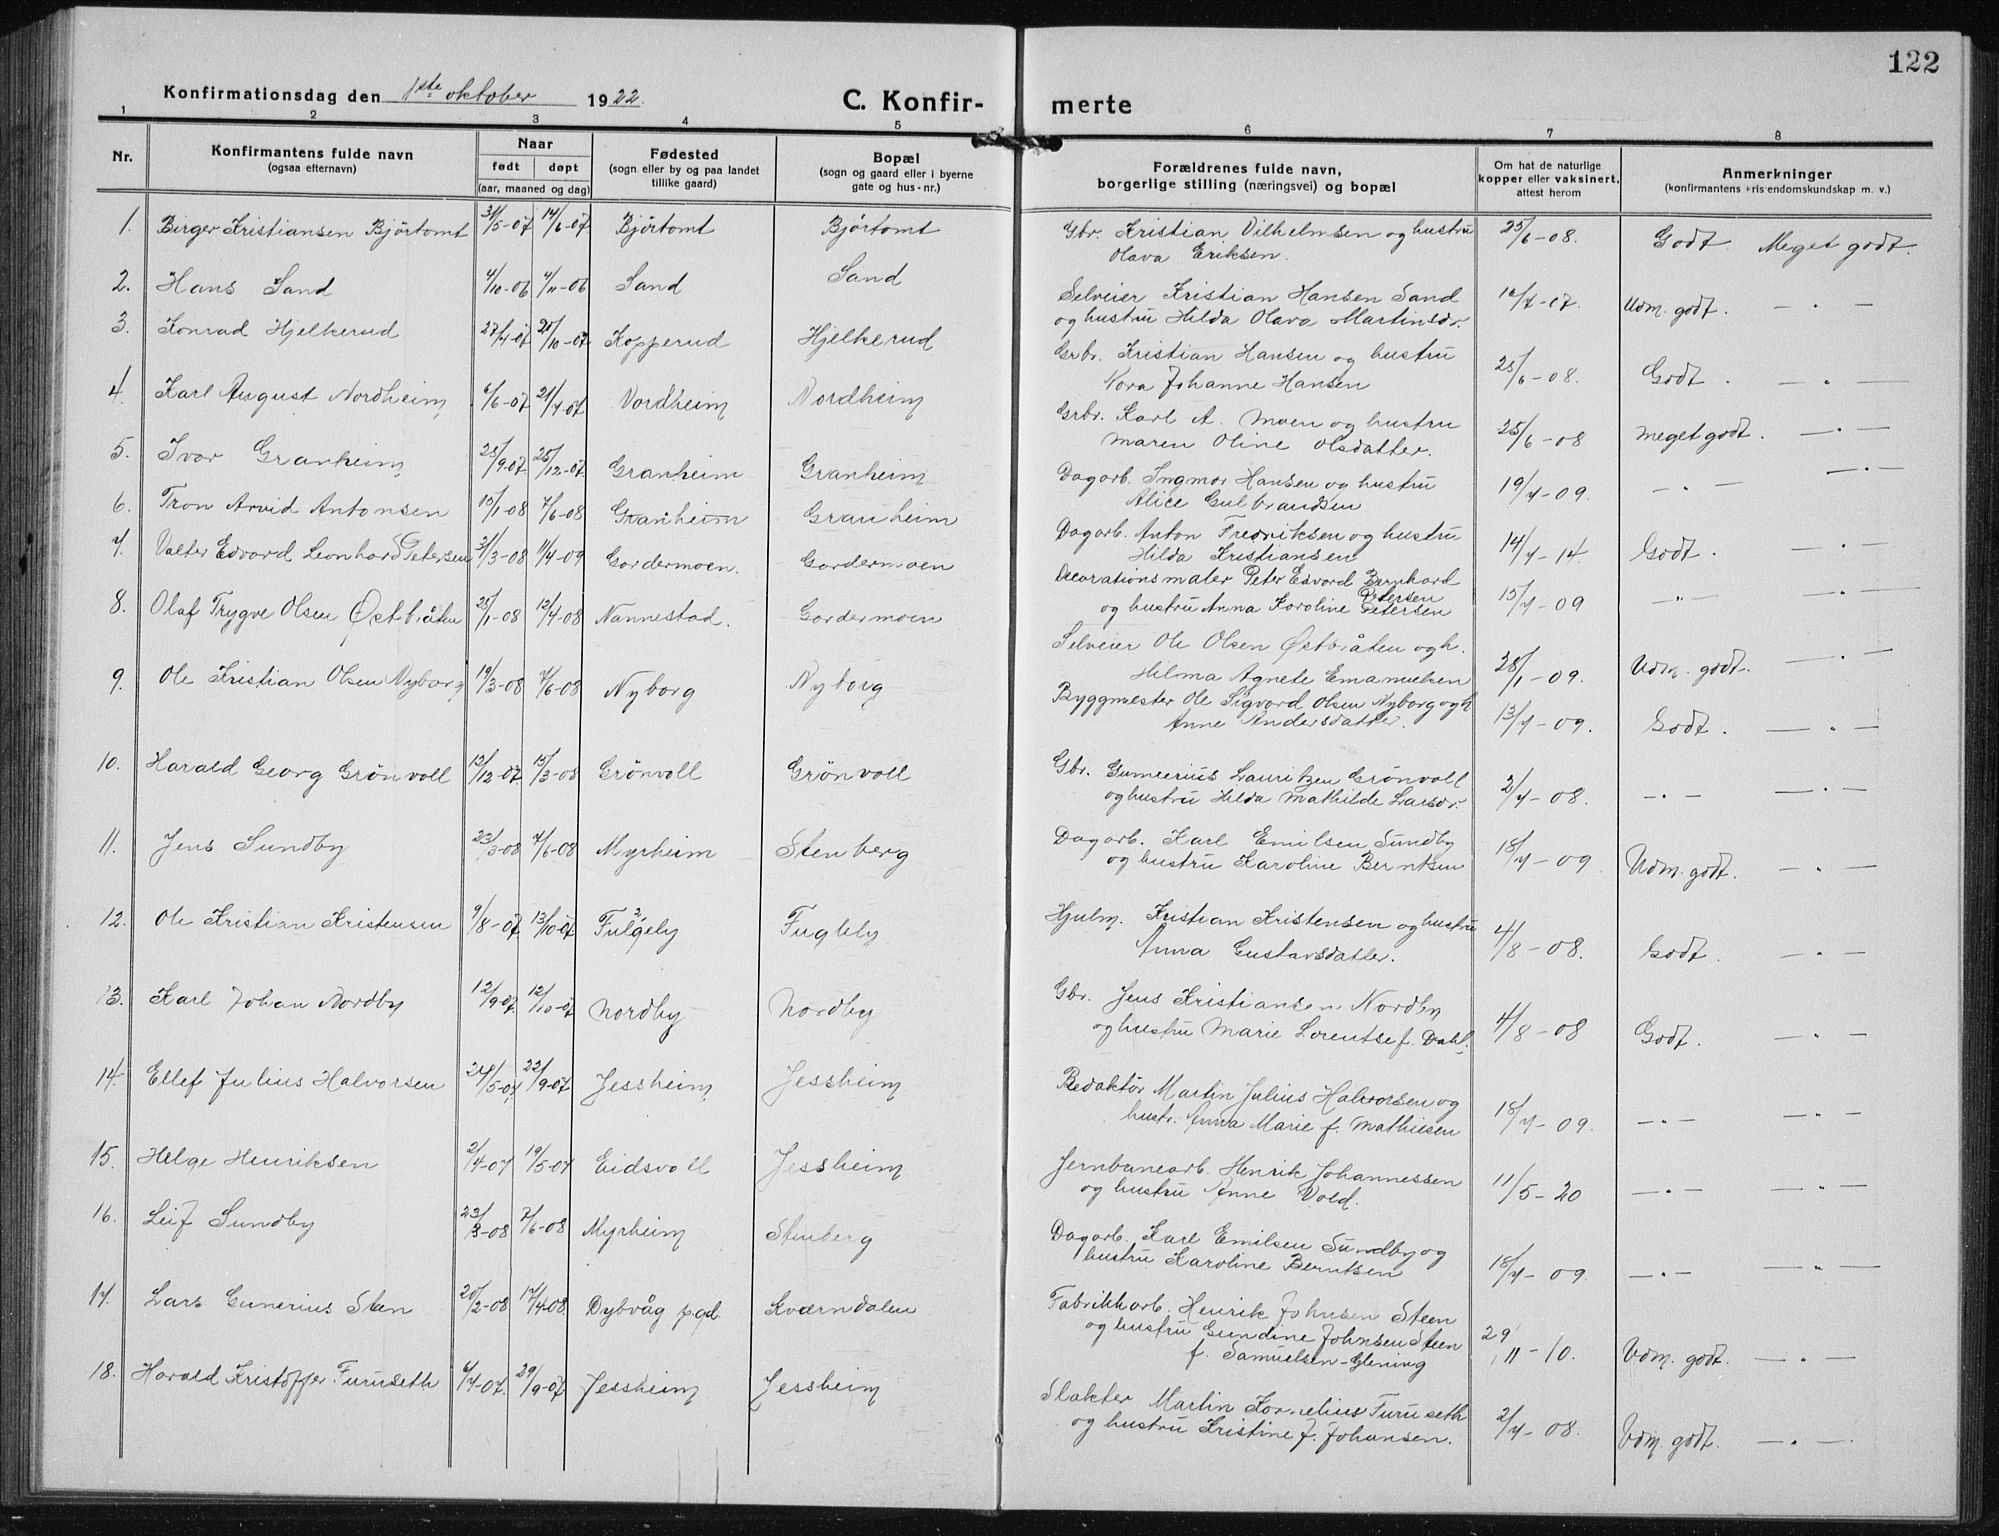 122
Konfirmationsdag den 1ste oktober 1922. C. Konfir- merte
1 2 3 4 5 6 7 8
Nr.
Konfirmantens fulde navn
(ogsaa efternavn)
Naar
født døpt
(aar, maaned og dag)
Fødested
(sogn eller by og paa landet
tillike gaard)
Bopæl
(sogn og gaard eller i byerne
gate og hus-nr.)
Forældrenes fulde navn,
borgerlige stilling (næringsvei) og bopæl
Om hat de naturlige
kopper eller vaksinert,
attest herom
Anmerkninger
(konfirmantens kristendomskundskap m. v.)
1. Birger Kristiansen Bjørtomt 31/5-07 14/6-07 Bjørtomt Bjørtomt
Gbr. Kristian Vilhelmsen og hustru
Olava Eriksen. 25/6-08. Godt. Meget godt.
2. Hans Sand 4/10-06 4/11-06 Sand Sand
Selveier Kristian Hansen Sand
og hustru Hilda Olava Martinsdr. 7-07. Udm. godt. — " —
3. Konrad Hjelkerud 27/4-07 /10-07 Kopperud Hjelkerud
Grbr. Kristian Hansen og hustru
Nora Johanne Hansen 25/6-08. Godt. — " —
4. Karl August Nordheim 6/6-07 21/7-07 Nordheim Nordheim
Grbr. Karl A. Moen og hustru
Maren Oline Olsdatter. 25/6-08 Meget godt. — " —
5. Ivar Granheim 25/9-07 25/12-07 Granheim Granheim
Dagarb. Ingmar Hansen og hustru
Alice Gulbrandsen 19/7-09. — " — — " —
6. Tron Arvid Antonsen 15/1-08 7/6-08 Granheim Granheim
Dagarb. Anton Fredriksen og hustru
Hilda Kristiansen 14/7-14 Godt. — " —
7. Valter Edvard Leonhard Petersen 31/3-08 11/4-09 Gardermoen. Gardermoen
Decorationsmaler Peter Edvard Bernhard
Petersen
og hustru Anna Karoline Petersen 15/7-09 — " — — " —
8. Olaf Trygve Olsen Østbråten 25/1-08 12/4-08 Nannestad. Gardermoen
Selveier Ole Olsen Østbråten og h.
Hilma Agnete Emanuelsen 28/1-09. Udm. godt. — " —
9. Ole Kristian Olsen Nyborg 19/3-08 7/6-08 Nyborg Nyborg
Byggmester Ole Sigvard Olsen Nyborg og h
Anne Andersdatter. 13/7-09. Godt. — " —
10. Harald Georg Grönvoll 12/12-07. 15/3-08 Grönvoll Grönvoll
Gbr. Gunerius Lauritzen Grönvoll
og hustru Hilda Mathilde Larsdr. 2/7-08. — " — — " —
11. Jens Sundby 23/3-08 7/6-08 Myrheim Stenberg
Dagarb. Karl Emilsen Sundby
og hustru Karoline Berntsen 18/7-09 Udm. godt. — " —
12. Ole Kristian Kristensen 9/8-07 13/10-07 Fulgeby Fugleby
Hjulm. Kristian Kristensen og hustru
Anna Gustavsdatter. 4/8-08. Godt. — " —
13. Karl Johan Nordby 12/9-07. 12/10-07 Nordby Nordby
Gbr. Jens Kristiansen Nordby
og hustru Marie Lorentse f. Dahl. 4/8-08 Godt. — " —
14. Ellef Julius Halvorsen 24/5-07 22/9-07 Jessheim Jessheim
Redaktör Martin Julius Halvorsen og
hustr. Anna Marie f. Mathiesen 18/7-09. — " — — " —
15. Helge Henriksen 2/4-07 19/5-07 Eidsvoll Jessheim
Jernbanearb. Henrik Johannessen
og hustru Anne Vold. 11/5-20 — " — — " —
16. Leif Sundby 23/3-08 7/6-08 Myrheim Stenberg
Dagarb. Karl Emilsen Sundby og
hustru Karoline Berntsen 18/7-09. — " — — " —
17. Lars Gunerius Steen 20/2-08 17/4-08 Dybvåg pgd. Kværndalen
Fabrikkarb. Henrik Johnsen Steen
og hustru Gundine Johnsen Steen
f. Samuelsen-Glening 29/11-10. Udm. godt. — " —
18. Harald Kristoffer Furuseth 6/7-07. 29/9-07 Jessheim Jessheim
Slakter Martin Kornelius Furuseth
og hustru Kristine f. Johansen. 2/7-08. Udm. godt. — " —